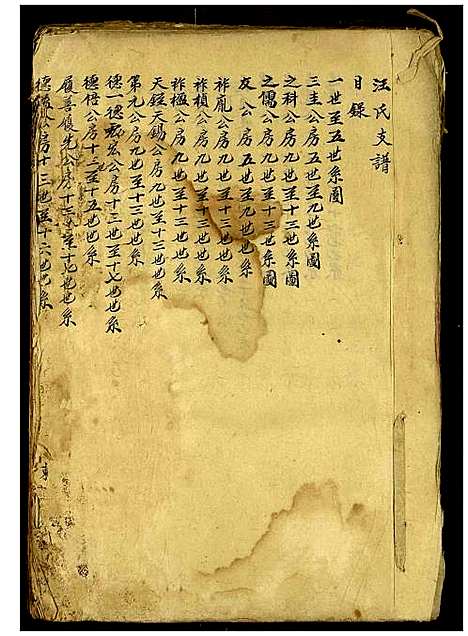 汪氏支譜
目錄
一世至五世系圖
三圭公房五世至九世系圖
之科公房九世至十三世系圖
之儒公房九世至十三世系圖
友公房五世至九世世系
祚胤公房九世至十三世世系
祚楨公房九世至十三世世系
祚楹公房九世至十三世世系
天錠天錫公房九世至十三世世系
第元公房九世至十三世世系
德一德宏公房十三世至十七世世系
德公房十三至十五世世系
履善履先公房十世至十七世世系
德公房十三世至十六世世系